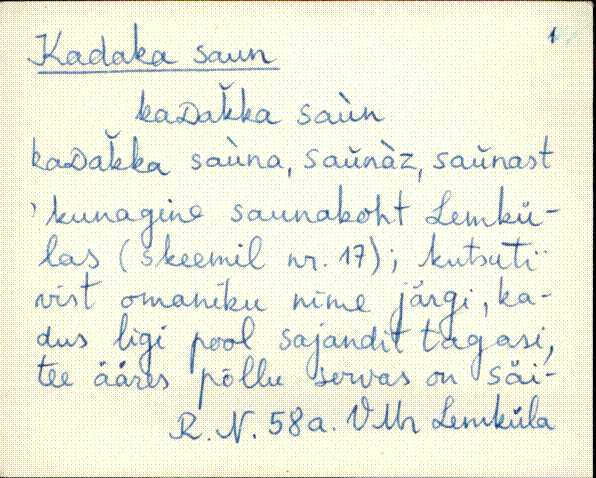 1
Kadaka saun
kaᴅak̆ka saùn
kaᴅak̆ka saùna, saŭnàz, saŭnast
'kunagine saunakoht Lemkü-
las (skeemil nr. 17); kutsuti
vist omaniku nime järgi, ka-
dus ligi pool sajandit tagasi,
tee ääres põllu servas on säi-
R. N. 58a. VMr Lemküla